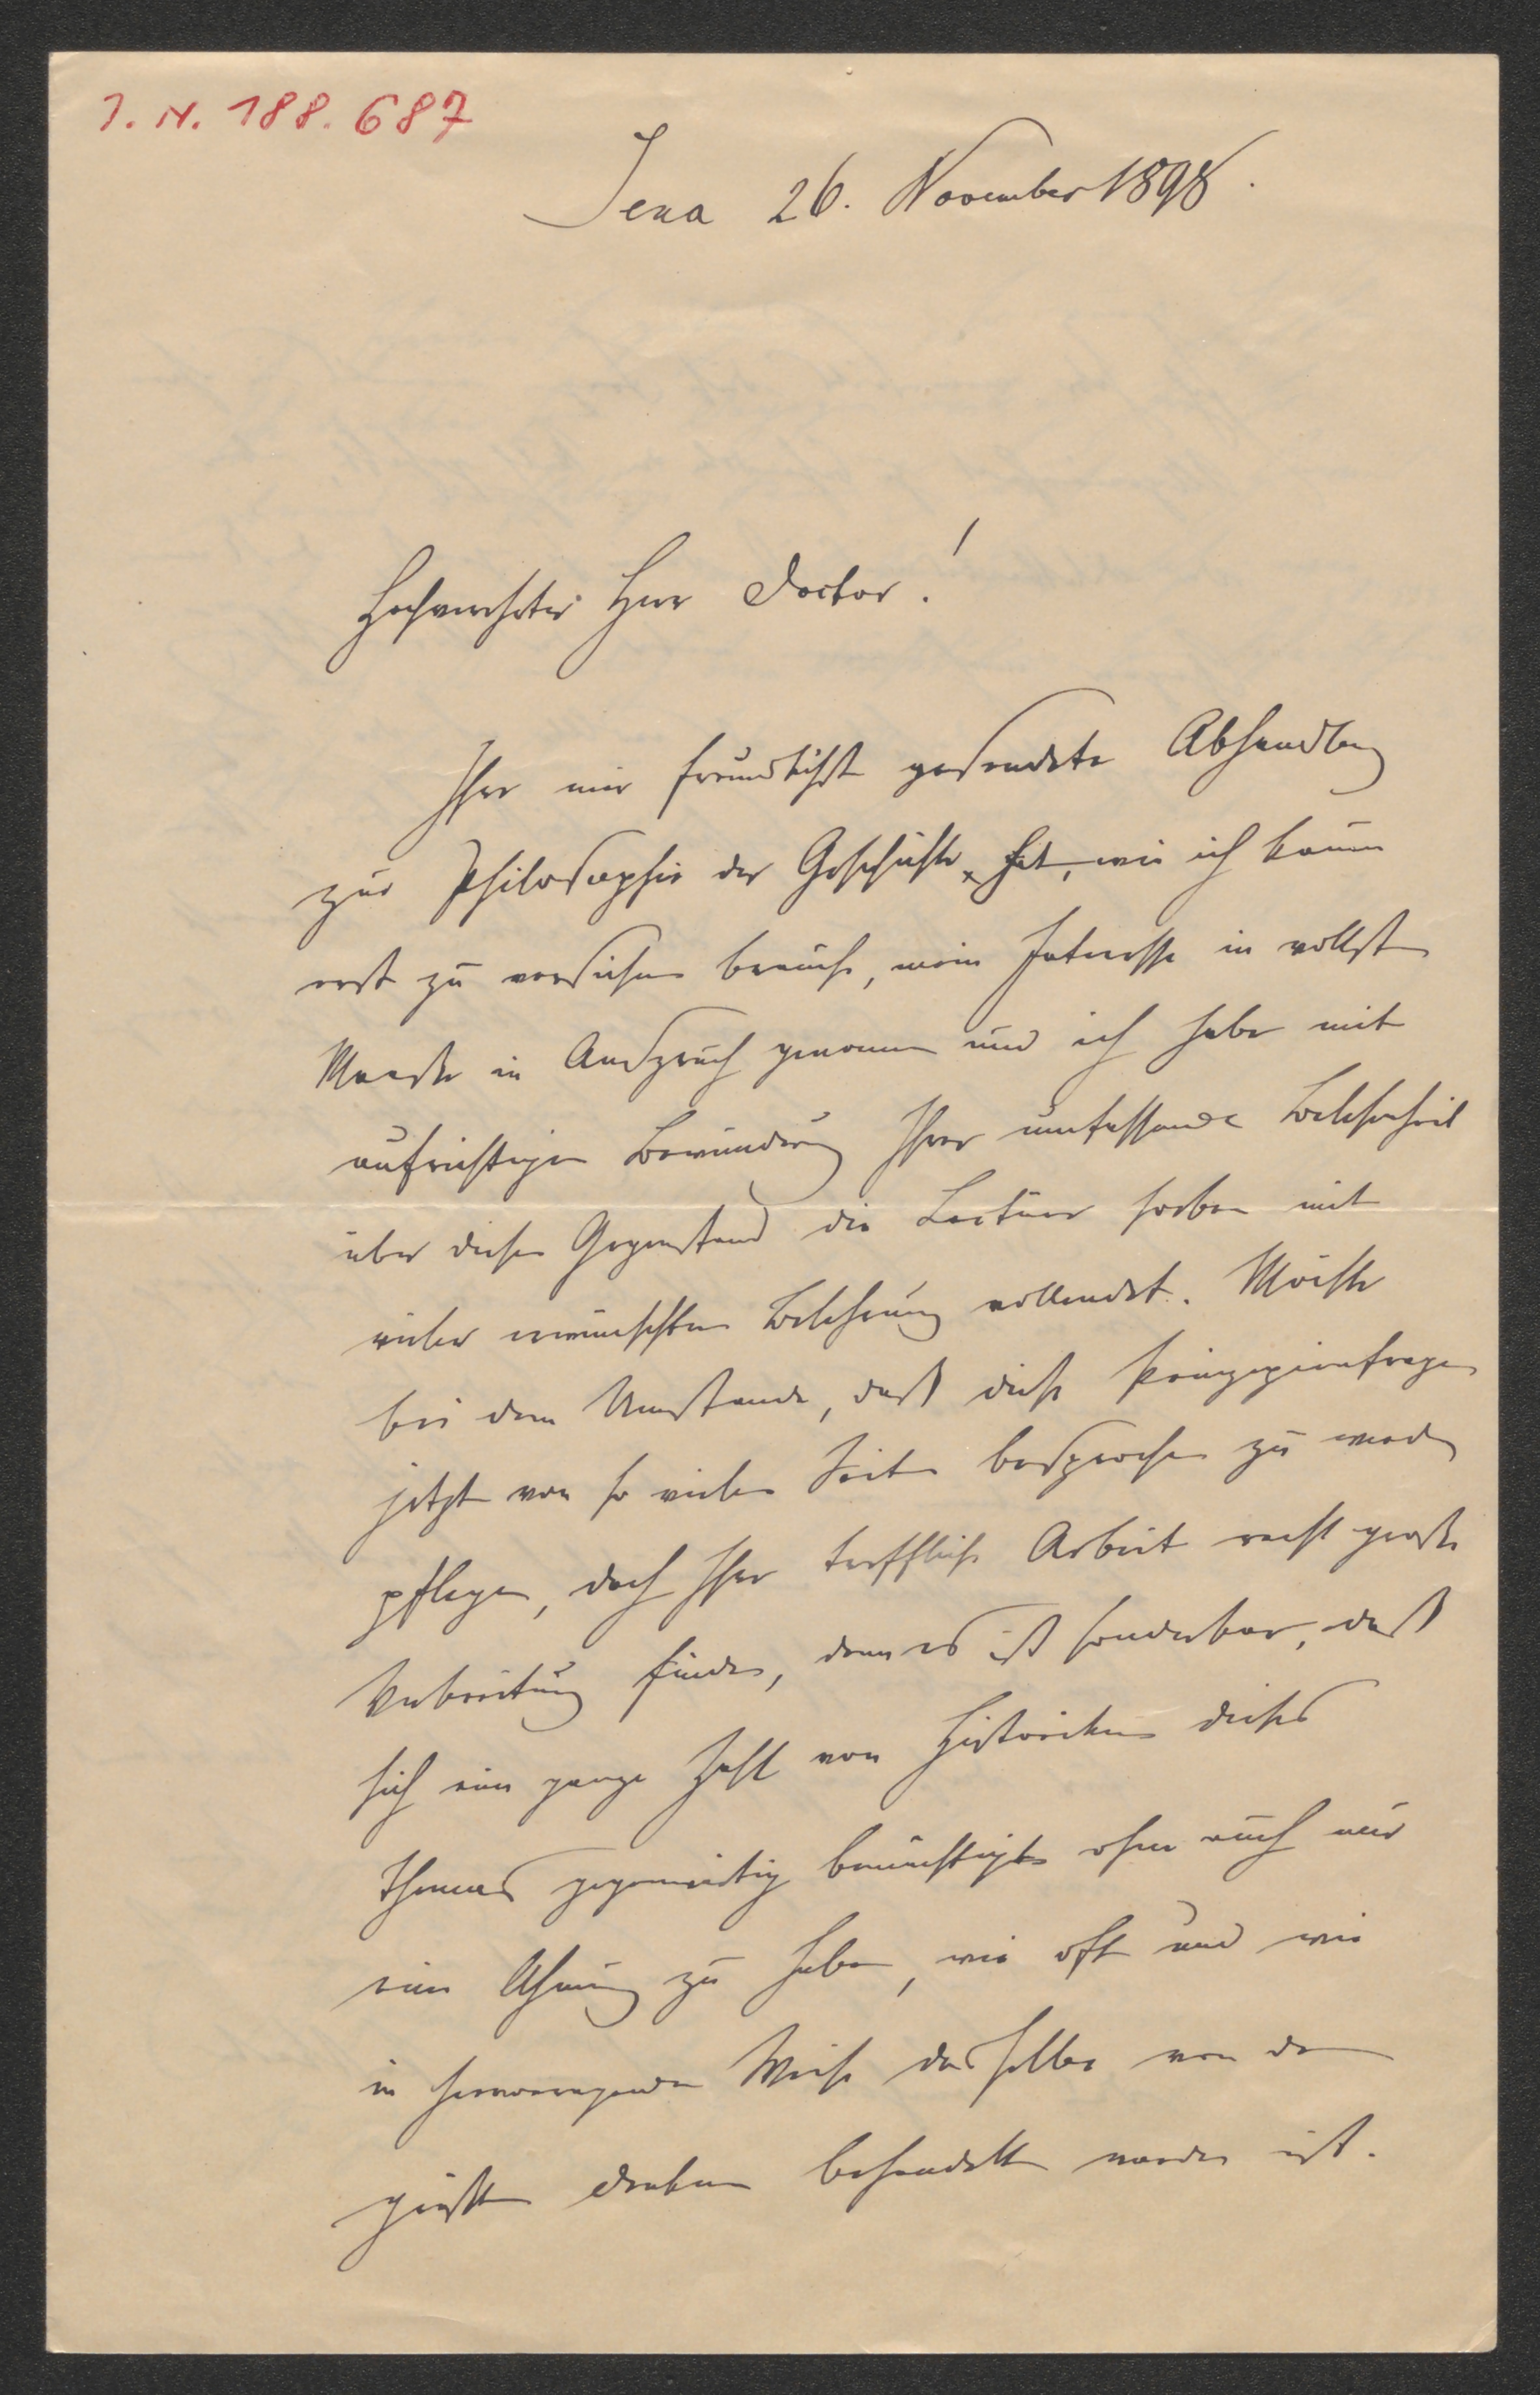 I. N. 188.687
Jena 26. November 1898.
Hochverehrter Herr Doctor!
Ihre mir freundlichst gesendete Abhandlung
zur Philosophie der Geschichte hat, wie ich kaum
erst zu versichern brauche, mein Interesse in vollstem
Maaße in Anspruch genommen und ich habe mit
aufrichtiger Bewunderung Ihrer umfassenden Belesenheit
über diesen Gegenstand die Lectüre soeben mit
vieler erwünschten Belehrung vollendet. Möchte
bei dem Umstande, daß diese Prinzipienfragen
jetzt von so vielen Seiten besprochen zu werden
pflegen, doch Ihre treffliche Arbeit recht große
Verbreitung finden, denn es ist sonderbar, daß
sich eine ganze Zahl von Historikern dieses
Themas gegenwärtig bemächtigte ohne auch nur
eine Ahnung zu haben, wie oft und wie
in hervorragender Weise dasselbe von den
größten Denkern behandelt worden ist.